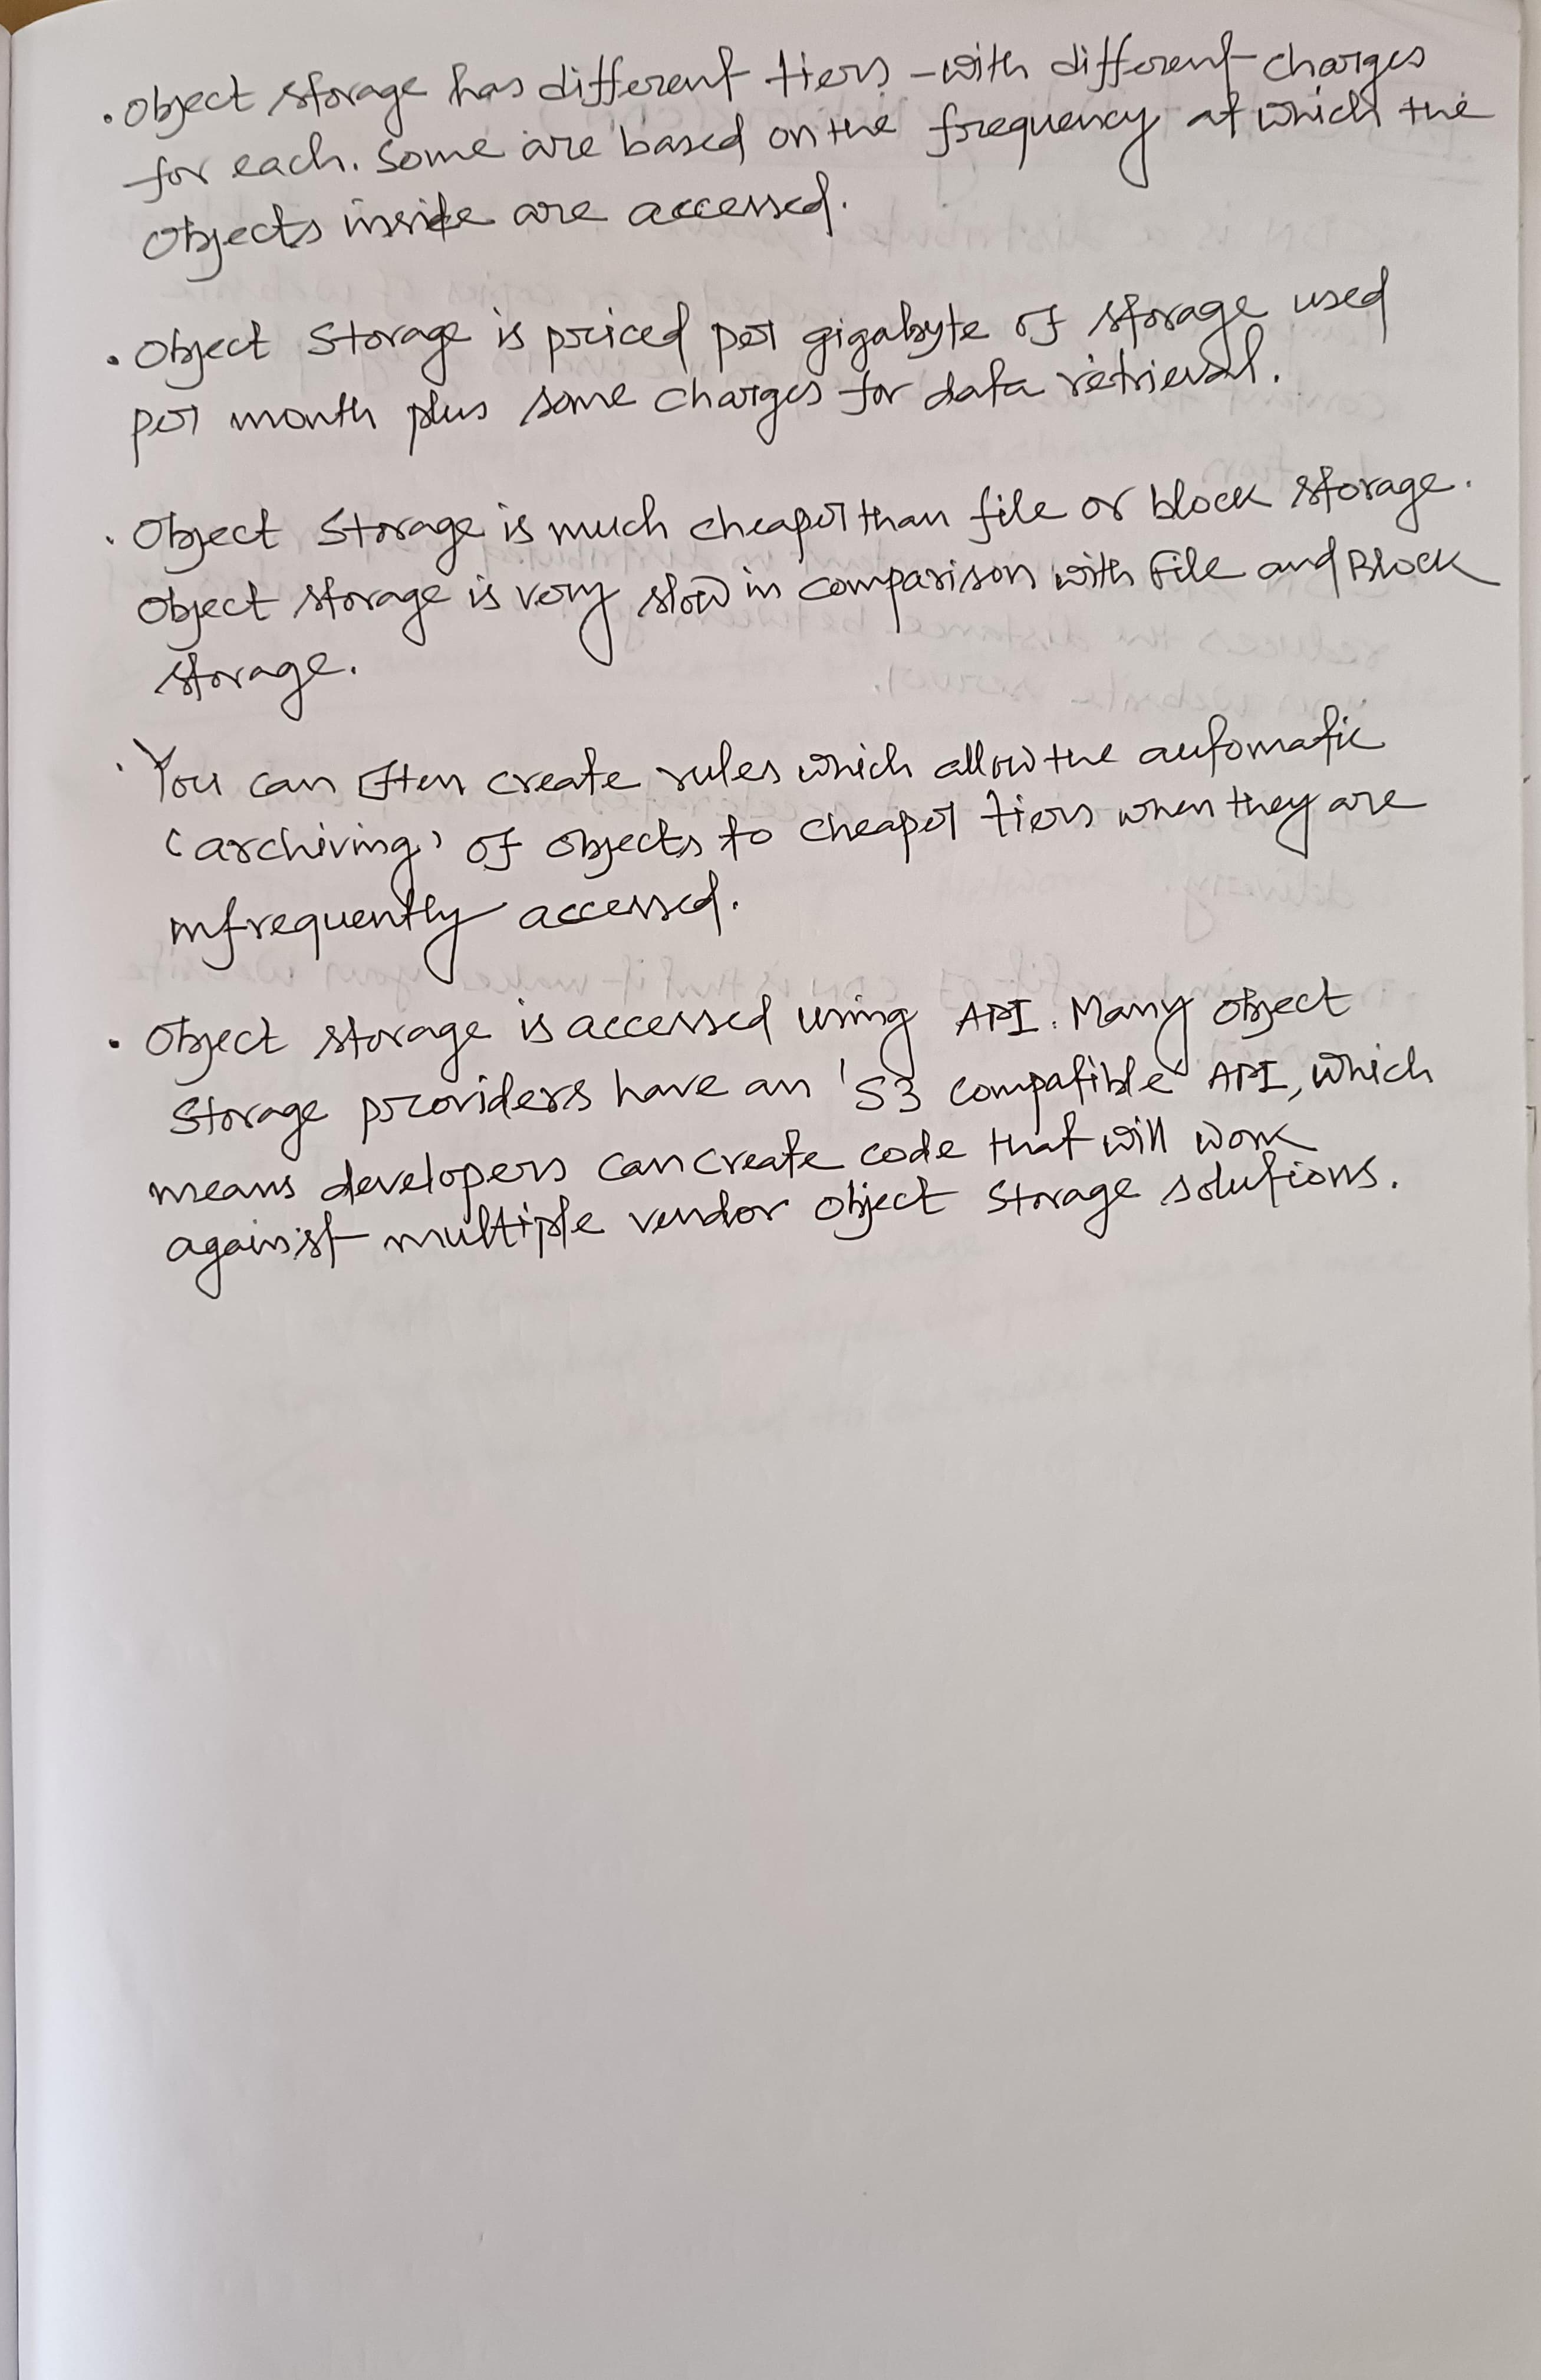 • Object storage has different tiers - with different charges
for each. Some are based on the frequency at which the
objects inside are accessed.
• Object Storage is priced per gigabyte of storage used
per month plus some charges for data retrieval.
• Object Storage is much cheaper than file or block storage.
Object storage is very slow in comparison with File and Block
storage.
• You can often create rules which allow the automatic
'archiving' of objects to cheaper tiers when they are
infrequently accessed.
• Object storage is accessed using API. Many object
Storage providers have an 'S3 compatible' API, which
means developers can create code that will work
against multiple vendor object Storage solutions.